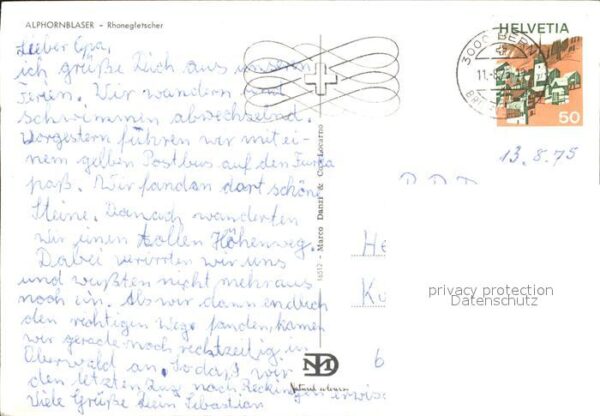 ALPHORNBLASER - Rhonegletscher
Lieber Opa,
ich grüße Dich aus unseren
Ferien. Wir wandern und
schwimmen abwechselnd.
Vorgestern fuhren wir mit ei-
nem gelben Postbus auf den Furka
paß. Wir fanden dort schöne
Steine. Danach wanderten
wir einen tollen Höhenweg.
Dabei verirrten wir uns
und wußten nicht mehr aus
noch ein. Als wir dann endlich
den richtigen Weg fanden, kamen
wir gerade noch rechtzeitig in
Oberwald an. Sodaß wir
den letzten Zug nach Reckingen
Viele Grüße Dein Sebastian
Marco Danzi & Co. Locarno
Natural colours
HELVETIA
50
3000 BERN
13.8.75
privacy protection
Datenschutz